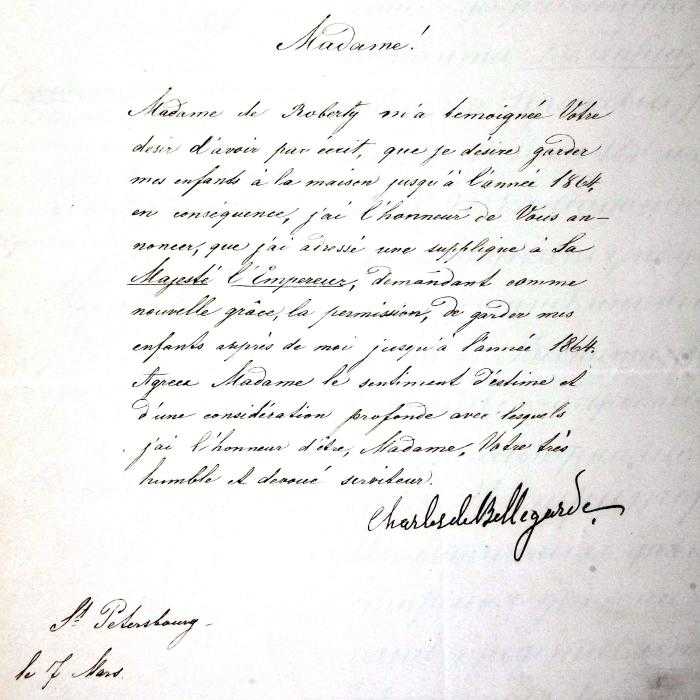 Madame!
Madame de Roberty m'a temoignée Votre
desir d'avoir par écrit, que je désire garder
mes enfants à la maison jusqu'à l'année 1864.
en conséquence, j'ai l'honneur de Vous an-
noncer, que j'ai adressé une supplique à Sa
Majesté l'Empereur, demandant comme
nouvelle grâce, la permission, de garder mes
enfants auprès de moi jusqu'à l'année 1864.
Agreez Madame le sentiment d'estime et
d'une considération profonde avec lesquels
j'ai l'honneur d'être, Madame, Votre très
humble et devoué serviteur.
Charles de Bellegarde.
St Petersbourg
le 7 Mars.